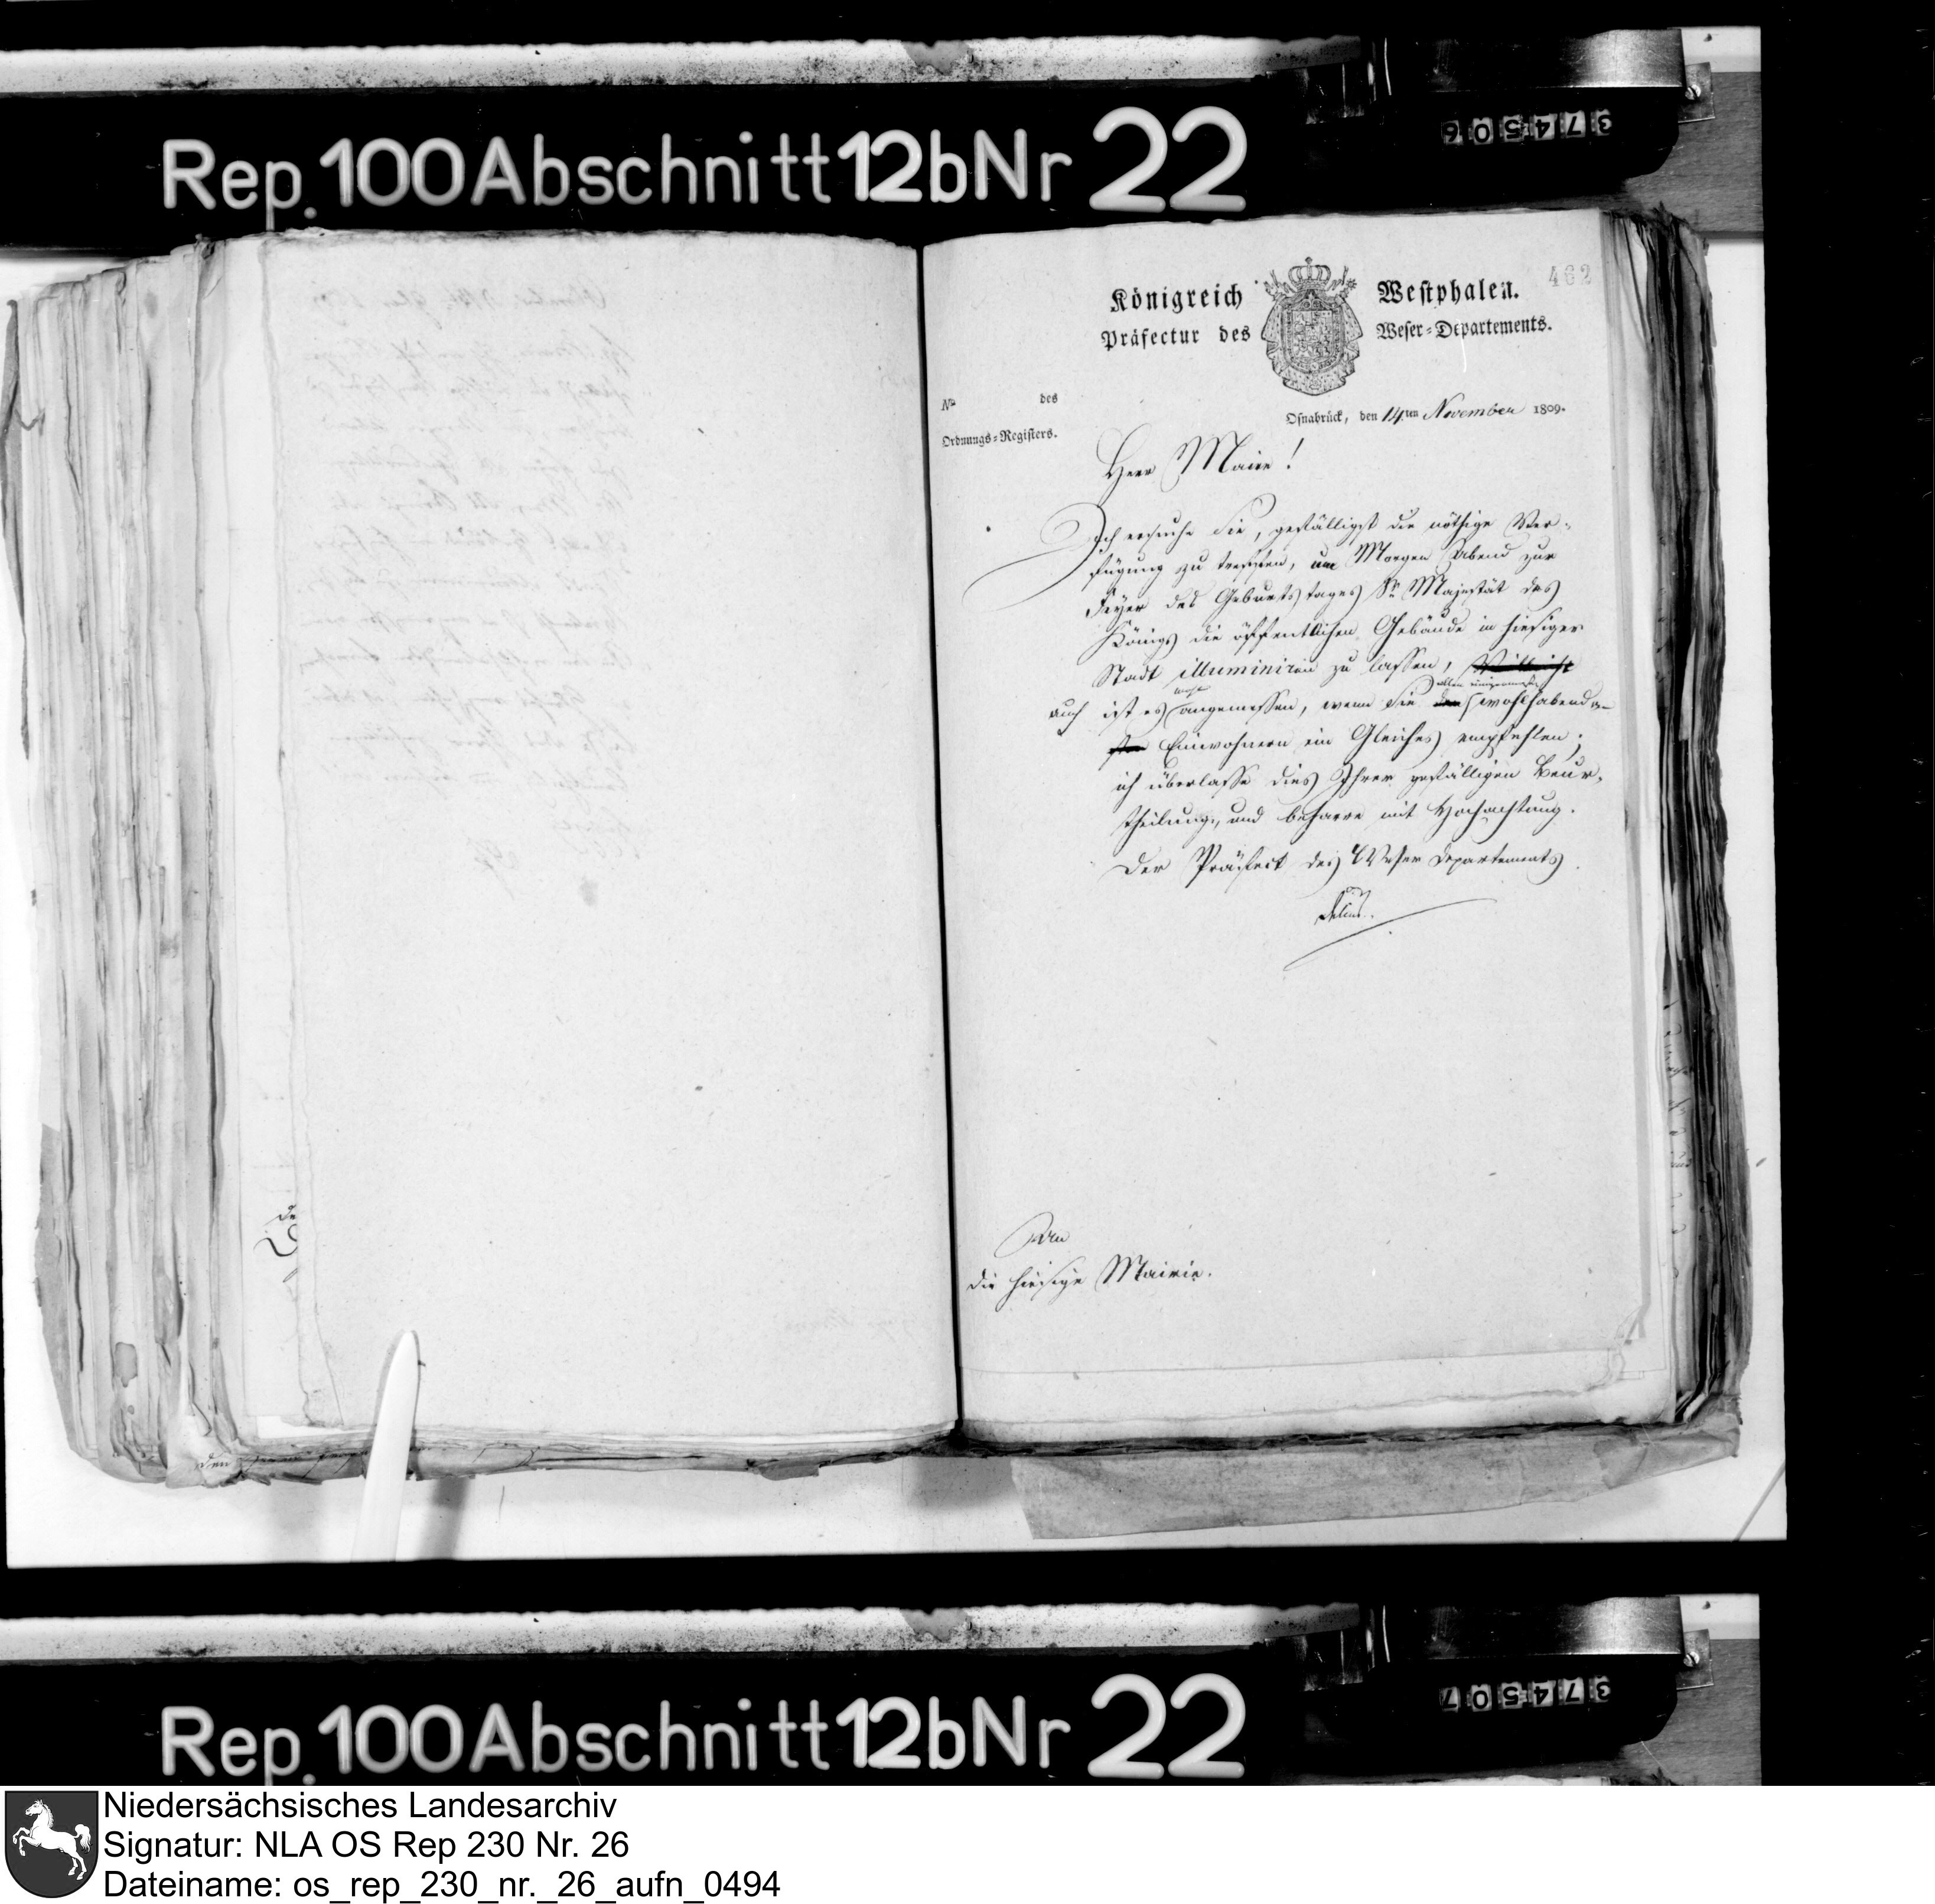 Rep. 100 Abschnitt 12b Nr 22
374506
462
Königreich Westphalen.
Präfectur des Weser-Departements.
No des
Ordnungs-Registers.
Osnabrück, den 14ten November 1809.
Herr Maire!
Ich ersuche Sie, gefälligst die nöthige Ver-
fügung zu treffen, um Morgen Abend zur
Feyer des Geburtstages Sr Majestät des
Königs die öffentlichen Gebäude in hiesiger
Stadt illuminiren zu lassen, Vielleicht
allen einigermaßen
auch ist es wohl angemessen, wenn Sie den wohlhabend en
sten Einwohnern ein Gleiches empfehlen;
ich überlasse dies Ihrer gefälligen Beur-
theilung, und beharre mit Hochachtung.
Der Präfect des Weser Departements
Delius.
An
die hiesige Mairie.
den
Rep. 100 Abschnitt 12b Nr 22
374507
Niedersächsisches Landesarchiv
Signatur: NLA OS Rep 230 Nr. 26
Dateiname: os_rep_230_nr._26_aufn_0494